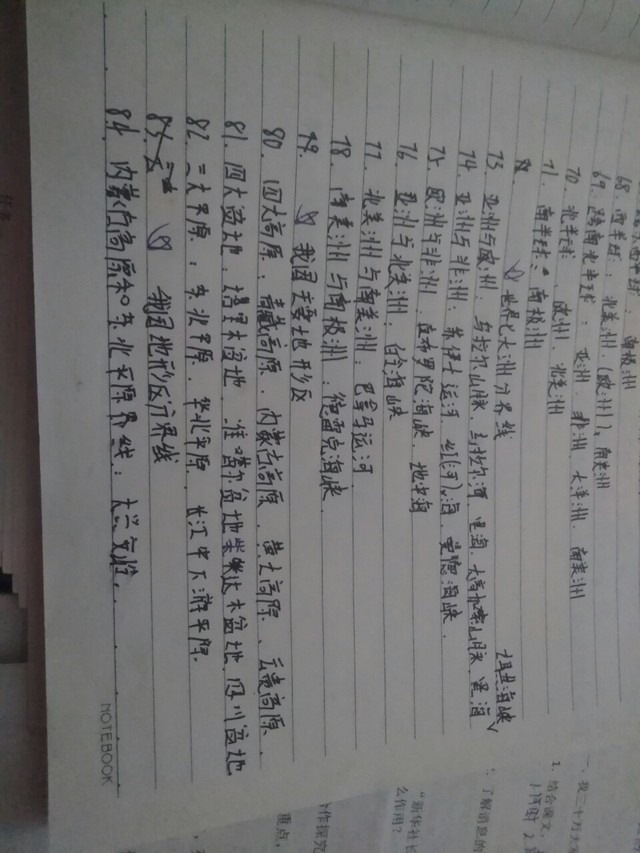 68. 西半球: 北美洲、(欧洲)、南美洲
69. 跨南北半球: 亚洲、非洲、大洋洲、南美洲
70. 北半球: 欧洲、北美洲
71. 南半球: 南极洲
72. 世界七大洲分界线
土耳其海峡
73. 亚洲与欧洲: 乌拉尔山脉、乌拉尔河、里海、大高加索山脉、黑海
74. 亚洲与非洲: 苏伊士运河、红海、曼德海峡
75. 欧洲与非洲: 直布罗陀海峡、地中海
76. 亚洲与北美洲: 白令海峡
77. 北美洲与南美洲: 巴拿马运河
78. 南美洲与南极洲: 德雷克海峡
79. 我国主要地形区
80. 四大高原: 青藏高原、内蒙古高原、黄土高原、云贵高原
81. 四大盆地: 塔里木盆地、准噶尔盆地 柴达木盆地、四川盆地
82. 三大平原: 东北平原、华北平原、长江中下游平原.
83. 我国地形区分界线
84. 内蒙古高原和东北平原界线: 大兴安岭.
NOTEBOOK
1. 结合课文,
了解消息的
"新华社长
么作用?
作探究
重点,